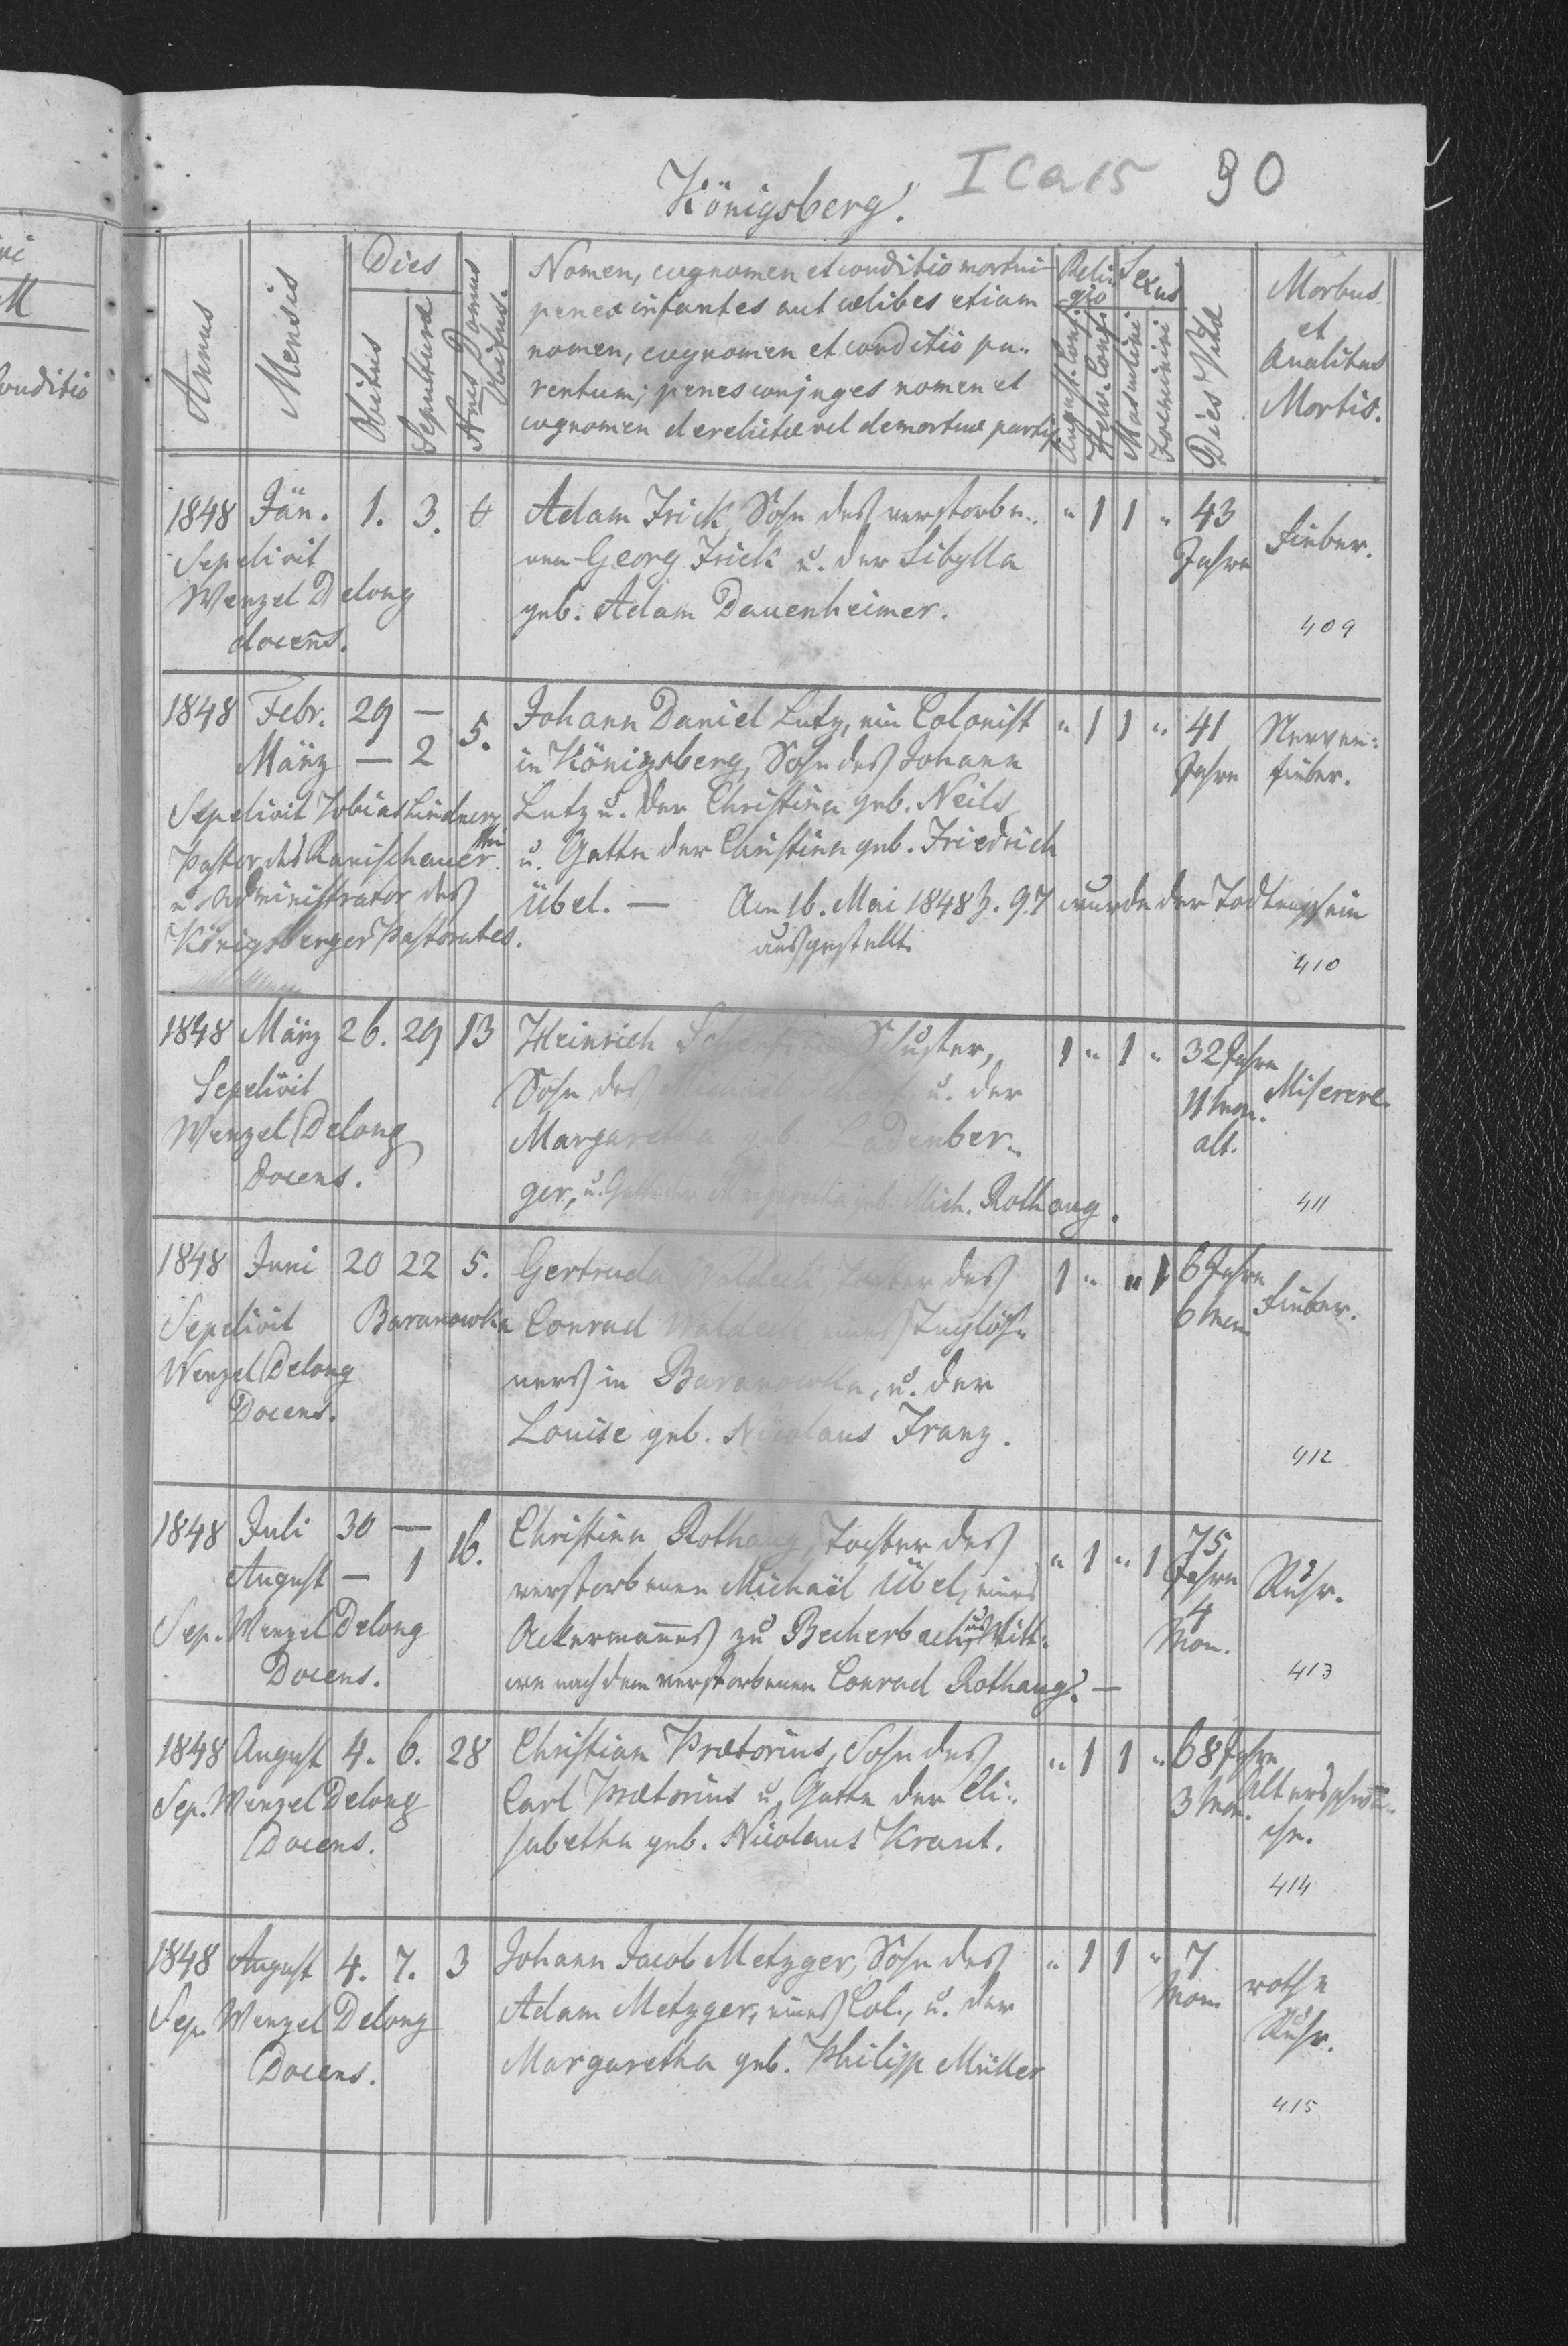 I Ca 15 90
Königsberg.
Annus
Mensis
Dies
Obitus
Sepulturæ
Nrus Domus
Nomen, cognomen et conditio mortui
penes infantes aut cœlibes etiam
nomen, cognomen et conditio pa-
rentum; penes conjuges nomen et
cognomen derelictæ vel demortuæ partis
Religio
August. Conf.
Helv. Conf.
Sexus
Masculini
Foeminini
Dies Vitæ
Morbus
et
Qualitas
Mortis.
1848 Jän. 1. 3. Adam Frick, Sohn des verstorbe- " 1 1 " 43
Jahre Fieber.
Sepelivit
nen Georg Frick u. der Sibylla
Wenzel Delong
geb. Adam Dauenheimer.
docens.
409
1848 Febr. 29 — 5. Johann Daniel Lutz, ein Colonist " 1 1 " 41 Nerven-
März — 2 in Königsberg, Sohn des Johann Jahre fieber.
Sepelivit Tobias Lindner, Lutz u. der Christina geb. Neils,
Pastor des Ranischauer u. Gatte der Christina geb. Friedrich
u. Administrator des Übel. — Am 16. Mai 1848 Z. 97 wurde der Todtenschein
Königsberger Pastorates. ausgestellt.
410
1848 März 26. 29 13 Heinrich Scherf, ein Schuster, 1 " 1 " 32 Jahre
Sepelivit Sohn des Michael Scherf, u. der 11 Mon. Miserere.
Wenzel Delong Margaretha geb. Ladenber- alt.
Docens. ger, u. Gatte der Margaretha geb. Mich. Rothaug.
411
1848 Juni 20 22 5. Gertruda Waldeck Tochter des 1 " " 1 6 Jahre
Sepelivit Baranowka Conrad Waldeck eines Taglöh- 6 Mon. Fieber.
Wenzel Delong ners in Baranowka, u. der
Docens. Louise geb. Nicolaus Franz.
412
1848 Juli 30 — 16. Christina Rothaug, Tochter des " 1 " 1 75
August — 1 verstorbenen Michael Übel, eines Jahre Ruhr.
Sep. Wenzel Delong Ackermannes zu Becherbach, und Witt- 4
Mon.
Docens. we nach dem verstorbenen Conrad Rothaug. —
413
1848 August 4. 6. 28 Christian Prætorius, Sohn des " 1 1 " 68 Jahre
Sep. Wenzel Delong Carl Prætorius u. Gatte der Eli- 3 Mon. Altersschwä-
Docens. sabetha geb. Nicolaus Kraut. che.
414
1848 August 4. 7. 3 Johann Jacob Metzger, Sohn des " 1 1 " 7 rothe
Sep. Wenzel Delong Adam Metzger, eines Col., u. der Mon. Ruhr.
Docens. Margaretha geb. Philipp Müller
415